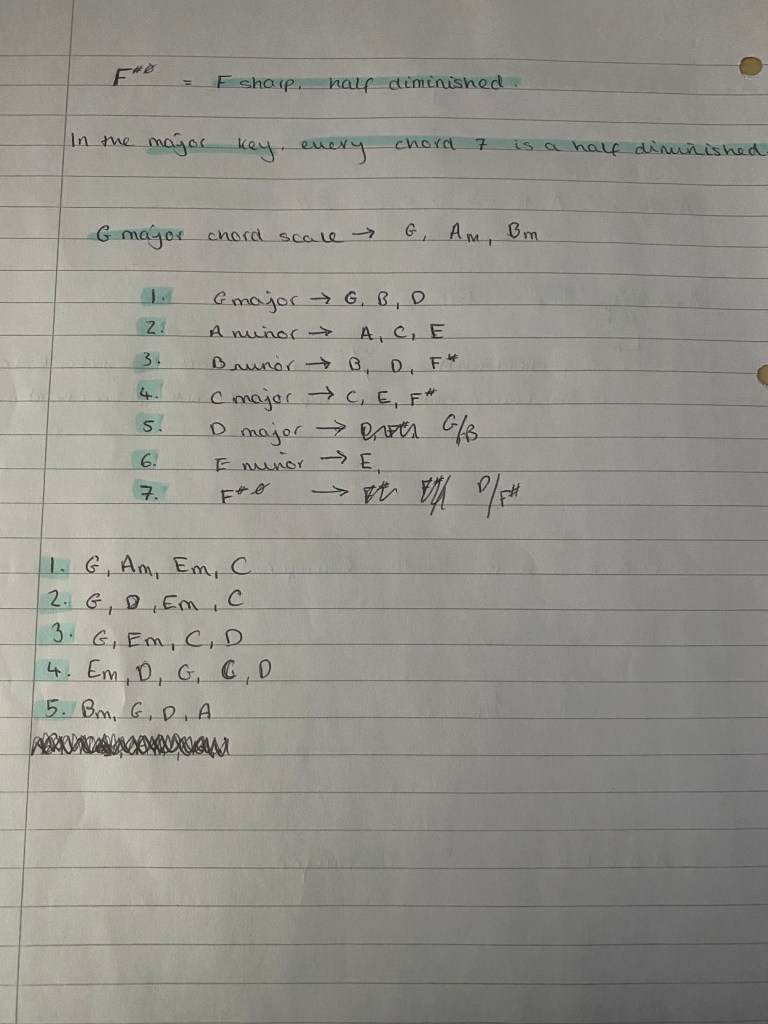 F#ø = F sharp, half diminished.
In the major key, every chord 7 is a half diminished.
G major chord scale → G, Am, Bm
1. G major → G, B, D
2. A minor → A, C, E
3. B minor → B, D, F#
4. C major → C, E, F#
5. D major → G/B
6. E minor → E,
7. F#ø → D/F#
1. G, Am, Em, C
2. G, D, Em, C
3. G, Em, C, D
4. Em, D, G, C, D
5. Bm, G, D, A